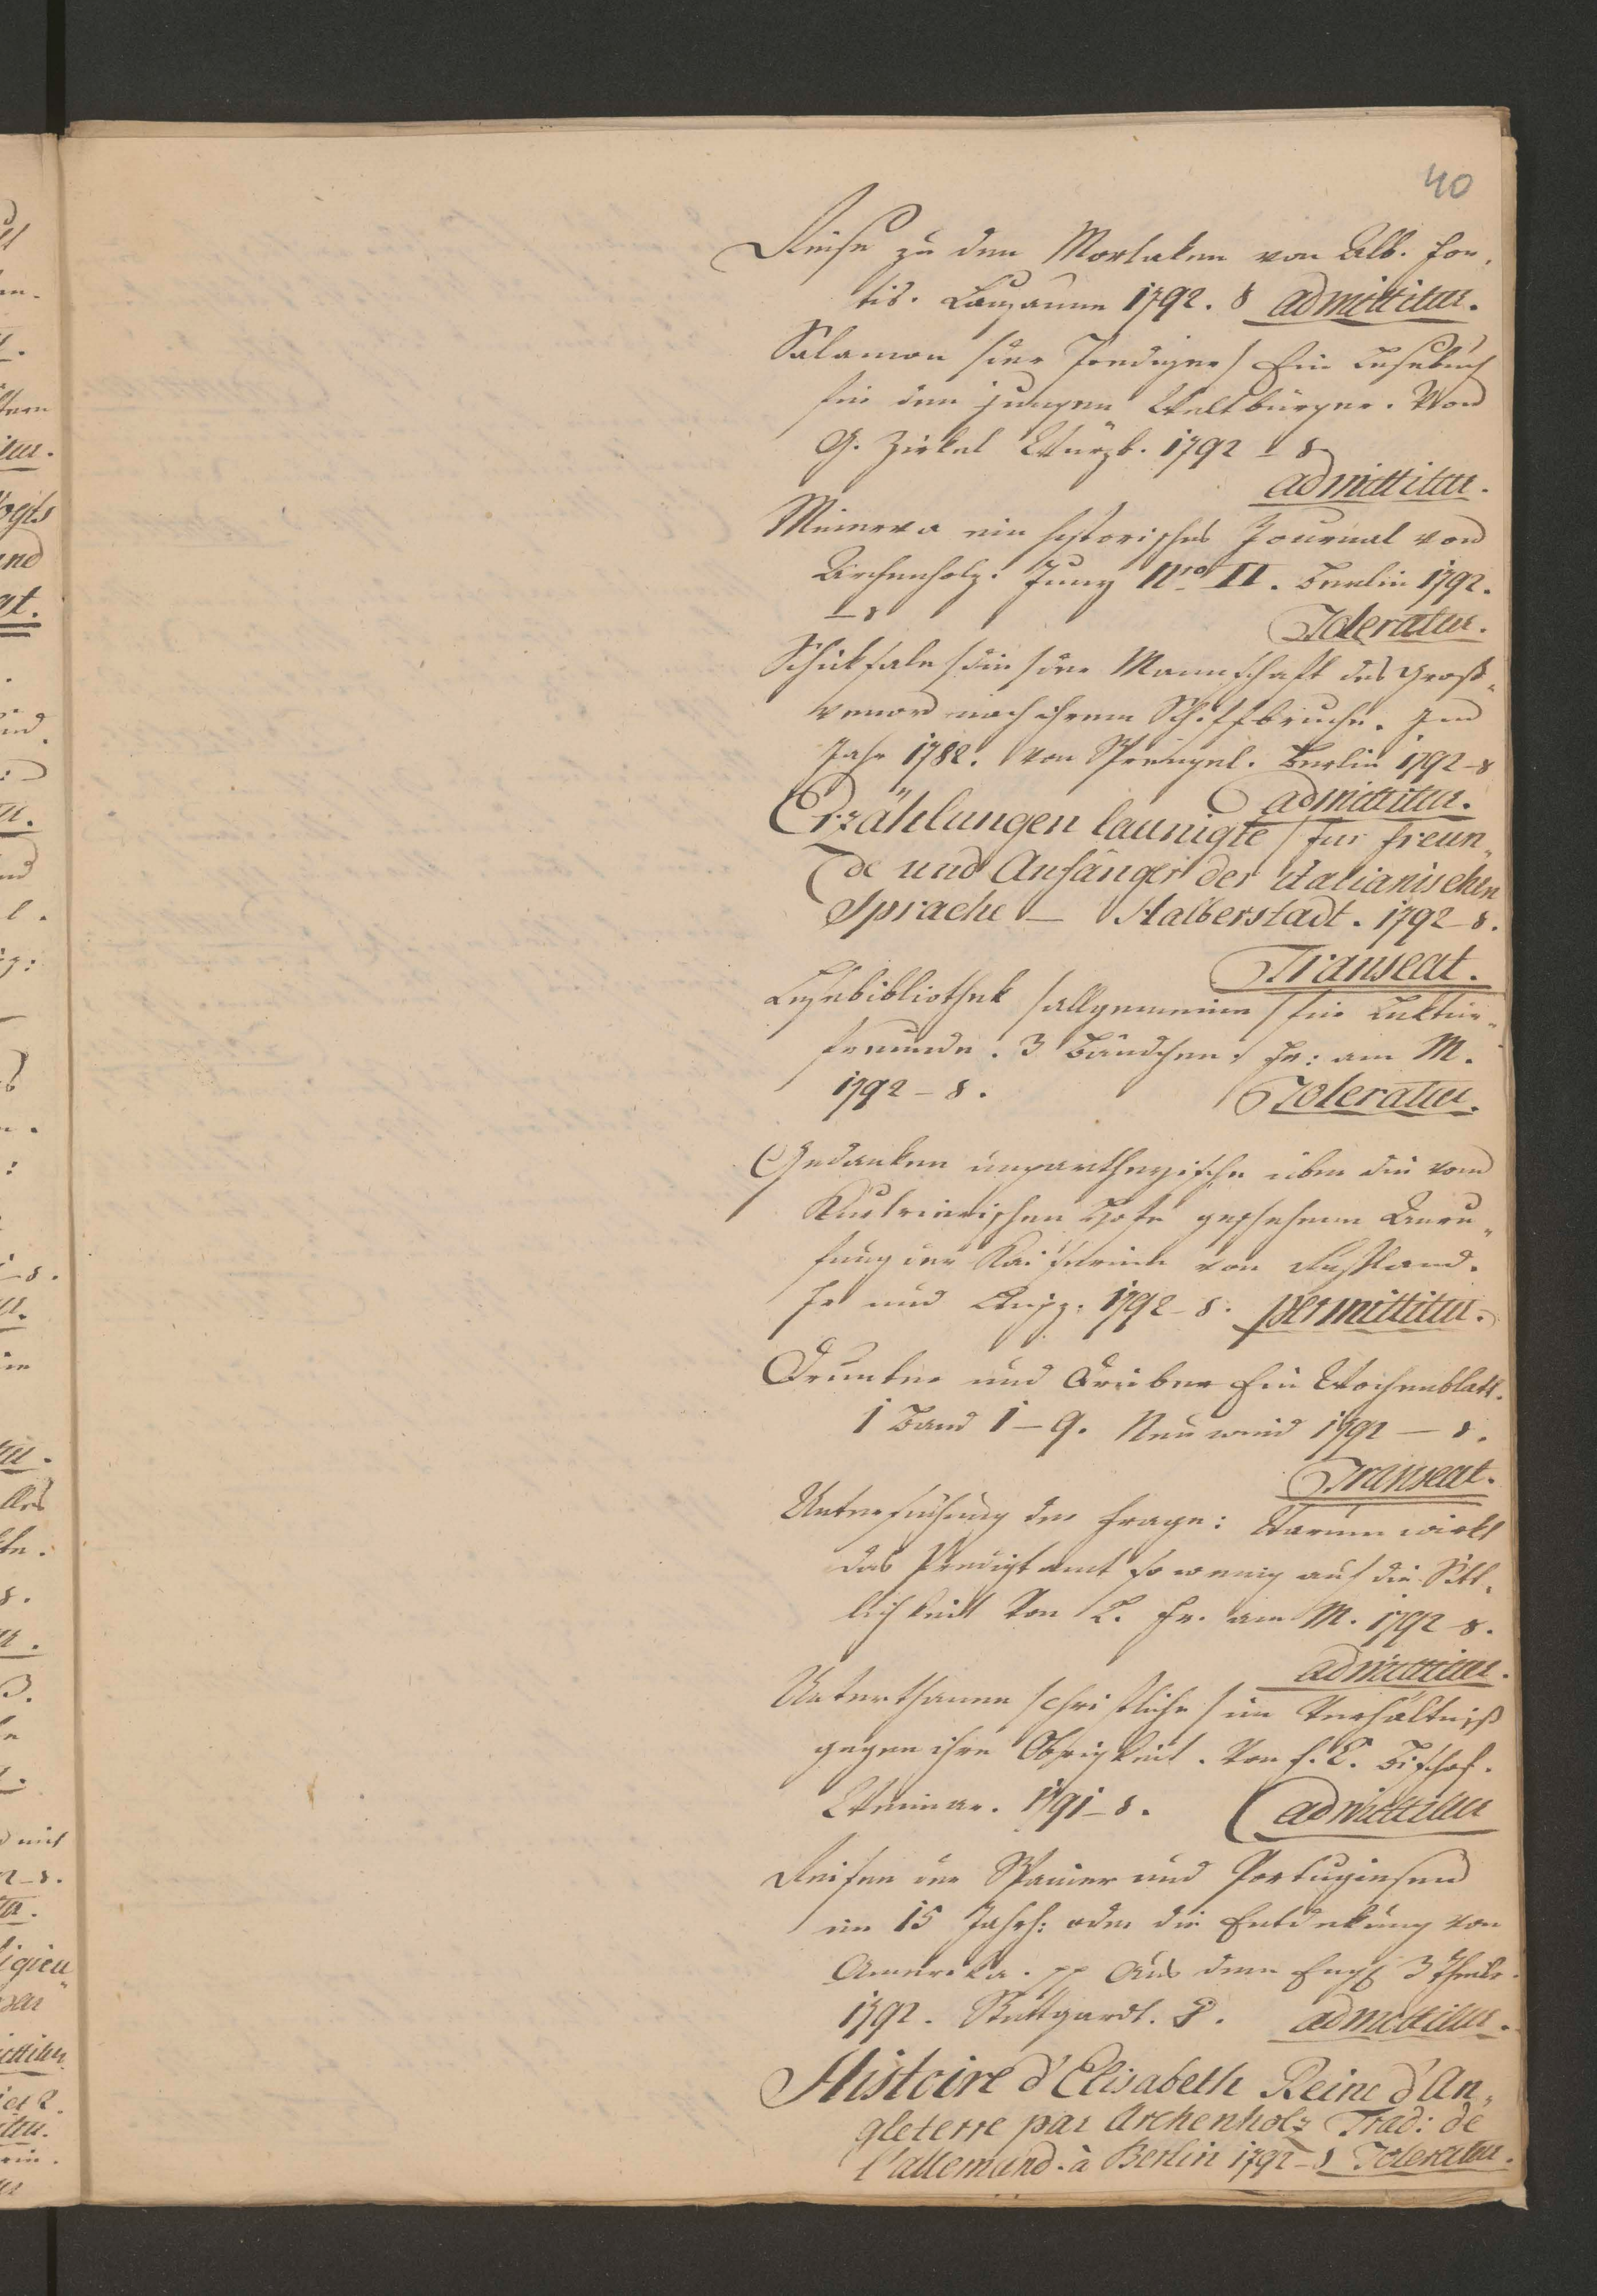 40
Reise zu den Morlaken von Alb. For„
tis. Lausanne 1792. 8 admittitur.
Salamon /der Prediger/ Ein Lesebuch
für den jungen Weltbürger. Von
G. Zirkel Würzb. 1792 – 8
admittitur.
Minerva ein historisches Journal von
Archenholz. Juny Nro II. Berlin 1792.
– 8 Toleratur.
Schicksale /die/ der Mannschaft des Gros„
venor nach ihrem Schiffbruche. Im
Jahr 1782. von Sprengel. Berlin 1792–8
admittitur.
Erzählungen launigte / für Freun„
de und Anfänger der italianischen
Sprache – Halberstadt. 1792–8.
Transeat.
Lesebibliothek /allgemeine/ für Lektür„
freunde. 3 Bändchen. Fr: am M.
1792 – 8. Toleratur.
Gedanken unpartheyische über die vom
Hofe geschehene Anru„
fung der Kaiserinn von Rußland.
Fr und Leipz. 1792–8. permittitur.
Drunter und Drüber Ein Wochenblatt.
1 Band 1–9. Neuwied 1792 – 8.
Transeat.
Untersuchung der Frage: Warum wirkt
das Predigtamt so wenig auf die Sitt„
lichkeit Von L. Fr. am M. 1792–8.
admittitur.
Unterthanen /christliche/ im Verhältniß
gegen ihre Obrigkeit. Von f. L. Bischof.
Weimar. 1791–8. admittitur
Reisen der Spanier und Portugiesen
im 15 Jahrh: oder die Entdekung von
Amerika. pp Aus dem Engl 3 Theile.
1792. Stuttgardt. 8. admittitur.
Histoire d'Elisabeth Reine d'An„
gleterre par Archenholz Trad: de
l'allemand. à Berlin 1792–8 Toleratur.